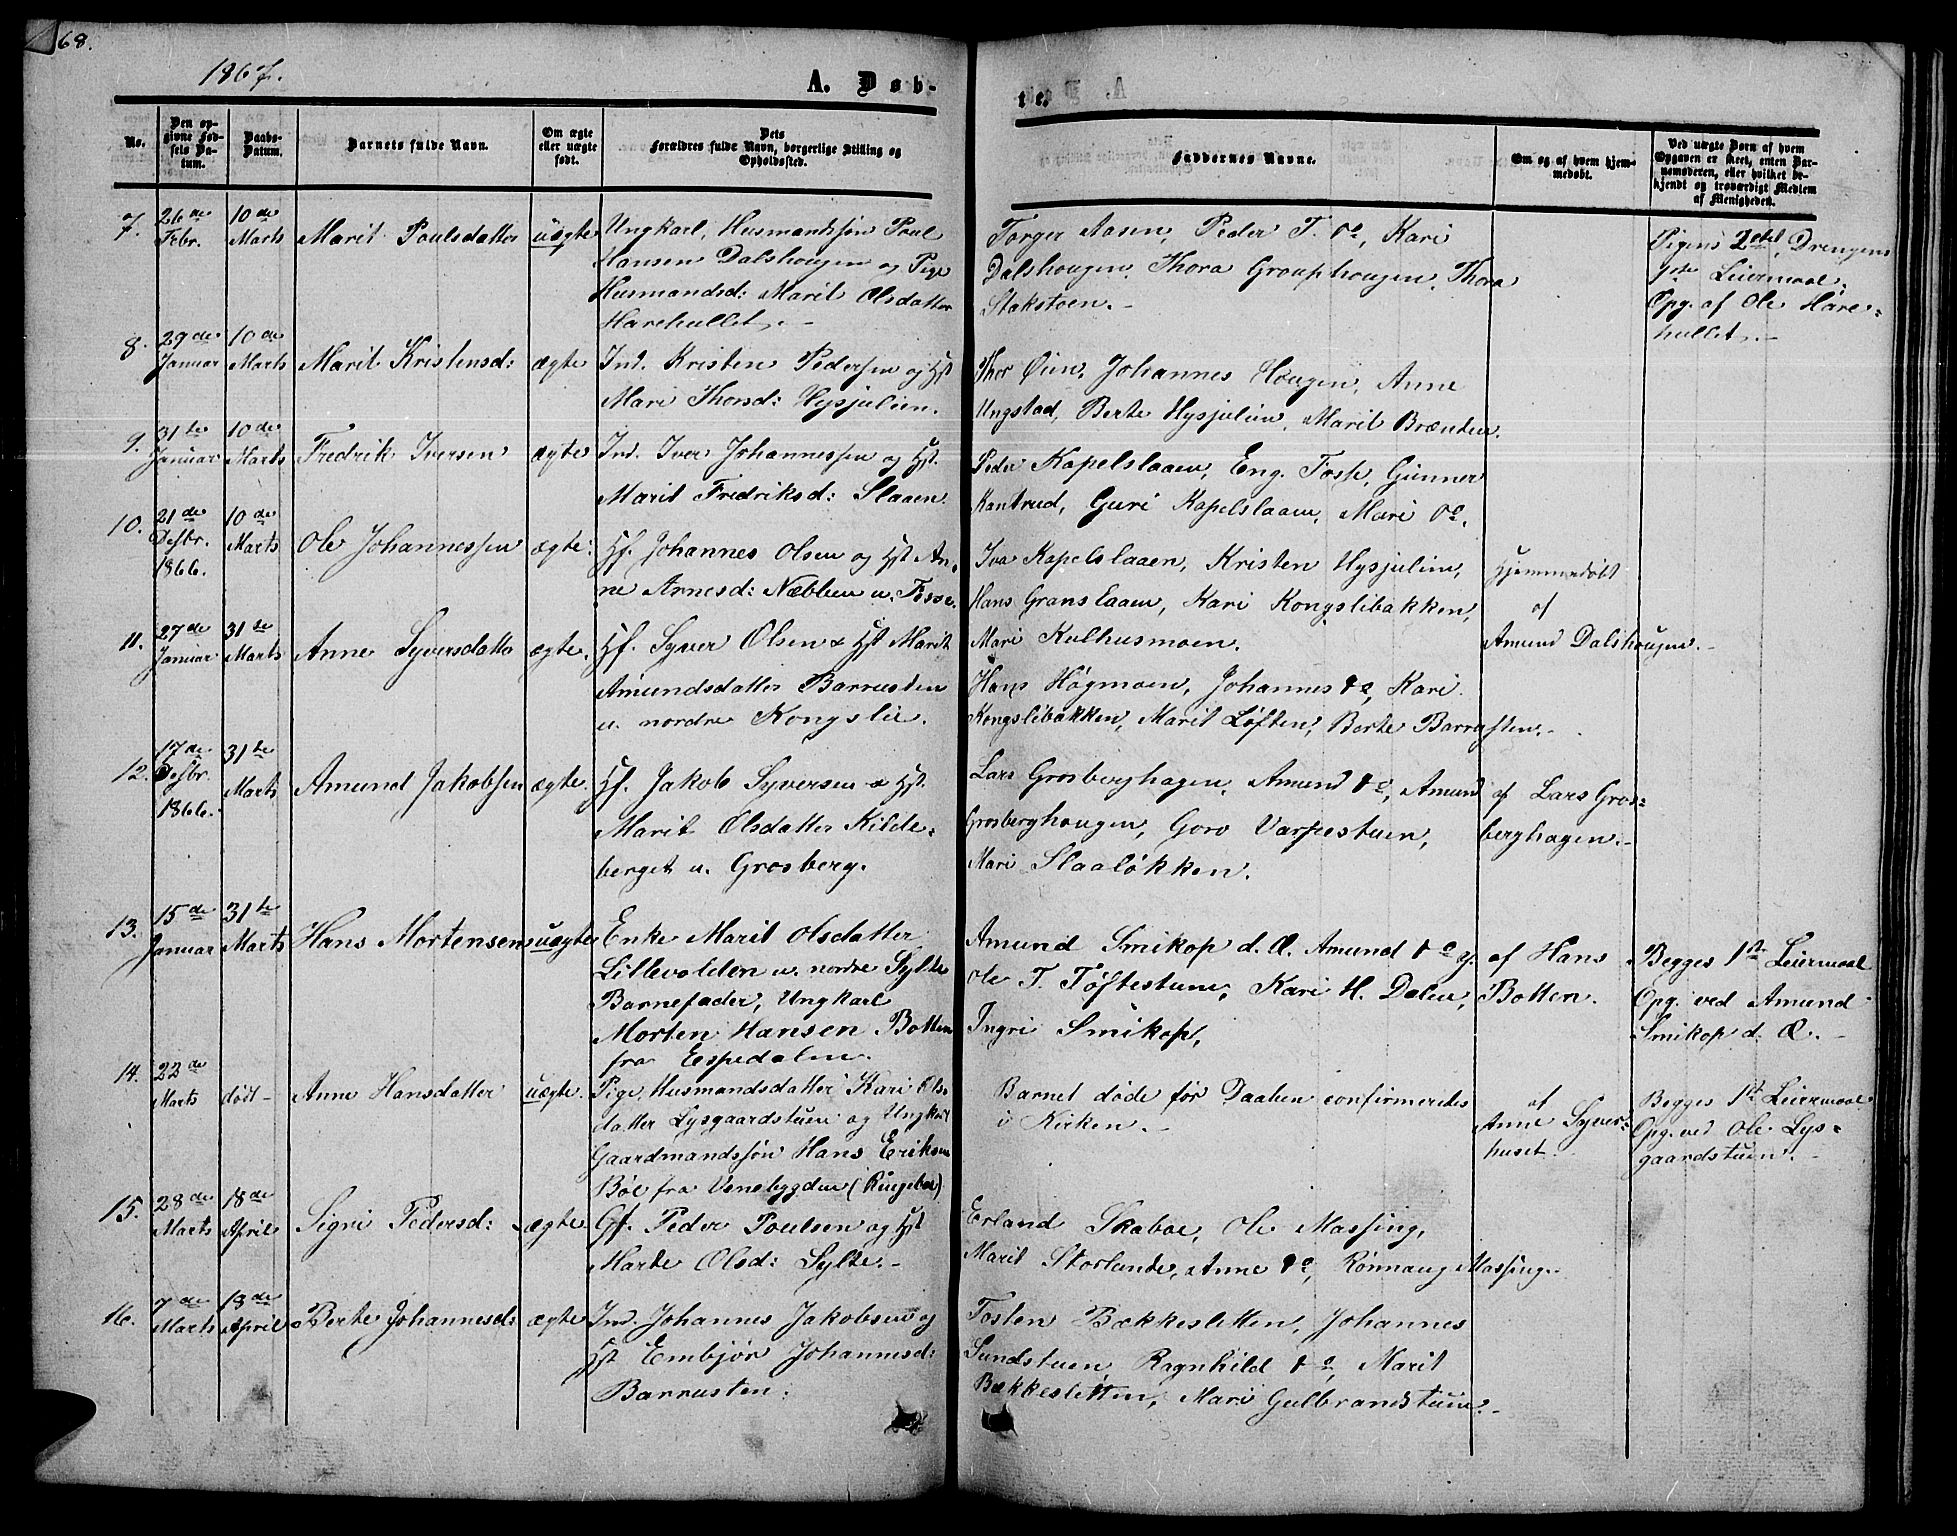 68.
1867.
A. Døb-
te.
No.
Den op-
givne Fød-
sels Da-
tum.
Daabs-
Datum.
Barnets fulde Navn.
Om ægte
eller uægte
født.
Dets
Forældres fulde Navn, borgerlige Stilling og
Opholdssted.
Faddernes Navne.
Om og af hvem hjem-
medøbt.
Ved uægte Børn af hvem
Opgaven er skeet, enten Bar-
nemoderen, eller hvilket be-
kjendt og troværdigt Medlem
af Menigheden.
7.
26de
Febr.
10de
Marts
Marit Poulsdatter
uægte
Ungkarl, Husmandssøn Poul
Hansen Dalshougen og Pige
Husmandsd: Marit Olsdatter
Harehullet.-
Torger Aasen, Peder T. do, Kari
Dalshougen, Thora Grouphougen, Thora
Stakstoen.-
Pigens 2det, Drengens
1ste Leiermaal.
Opg. af Ole Hare-
hullet.-
8.
29de
Januar
10de
Marts
Marit Kristensd:
ægte
Ind. Kristen Pedersen og Hst
Mari Thorsd: Hysjulien.
Thor Øien, Johannes Hougen, Anne
Ungstad, Berte Hysjulien, Marit Brænden.
9.
31te
Januar
10de
Marts
Fredrik Iversen
ægte
Ind. Iver Johannessen og Hst.
Marit Fredriksd: Slaaen.
Peder Kapelslaaen, Eng. Fosse, Gunner
Kantrud, Guri Kapelslaaen, Mari do.
10.
21de
Desbr.
1866.
10de
Marts
Ole Johannessen
ægte.
Hf. Johannes Olsen og Hst An-
ne Arnesd: Næbben u. Fosse.
Iva Kapelslaaen, Kristen Hysjulien,
Hans Granslaaen, Kari Kongslibakken,
Mari Kulhusmoen.
Hjemmedøbt
af
Amund Dalshougen.-
11.
27de
Januar
31te
Marts
Anne Syversdatter
ægte.
Hf. Syver Olsen & Hst Marit
Amundsdatter Barrusten
u. nordre Kongslie.
Hans Høgmoen, Johannes do, Kari
Kongslibakken, Marit Løften, Berte Barrusten.-
12.
17de
Desbr.
1866.
31te
Marts
Amund Jakobsen
ægte.
Hf. Jakob Syversen & Hst.
Marit Olsdatter Kilde-
berget u. Grosberg.
Lars Grosberghagen, Amund do, Amund
Grosberghougen, Goro Varpestuen,
Mari Slaaløkken.
af Lars Gros-
berghagen.-
13.
15de
Januar
31te
Marts
Hans Mortensen
uægte
Enke Marit Olsdatter
Lillevolden u. nordre Sylte
Barnefader, Ungkarl
Morten Hansen Botten
fra Espedalen.
Amund Smikop d. Æ. Amund do y.
Ole T. Tøftestuen, Kari H. Dalen,
Ingri Smikop,
af Hans
Botten.
Begges 1ste Leiermaal
Opg. ved Amund
Smikop d. Æ.-
14.
22de
Marts
død -
Anne Hansdatter
uægte.
Pige, Husmandsdatter Kari Ols-
datter Lysgaardstuen og Ungkarl
Gaardmandssøn Hans Eriksen
Bøe fra Venebygden (Ringebo)
Barnet døde før Daaben confirmeredes
i Kirken.-
af
Anne Syver-
huset.
Begges 1ste Leiermaal
Opg. ved Ole Lys-
gaardstuen.-
15.
28de
Marts
18de
April
Sigri Pedersd:
ægte
Gf. Peder Poulsen og Hst
Marte Olsd: Sylte.-
Erland Skaboe, Ole Massing,
Marit Storlunde, Anne do, Rønnaug Massing.
16.
7de
Marts
18de
April
Berte Johannesd:
ægte
Ind. Johannes Jakobsen og
Hst Embjør Johannesd:
Barrusten.
Tosten Bækkesletten, Johannes
Sundstuen, Ragnhild do, Marit
Bækkesletten, Mari Gulbrandstuen.-